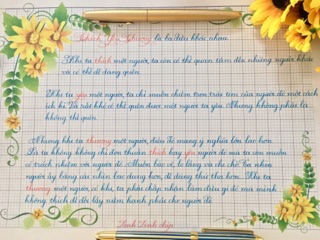 Thích Yêu Thương là ba điều khác nhau.
Khi ta thích một người, ta còn có thể quan tâm đến những người khác
và có thể dễ dàng quên.
Khi ta yêu một người, ta chỉ muốn chiếm trọn trái tim của người đó một cách
ích kỉ. Và rất khó có thể quên được một người ta yêu. Nhưng không phải là
không thể quên.
Nhưng khi ta thương một người, điều ấy mang ý nghĩa lớn lao hơn.
Là ta không chỉ đơn thuần thích hay yêu người đó mà ta còn muốn
có trách nhiệm với người đó. Muốn bảo vệ, lo lắng và che chở cho
người ấy bằng cái nhìn bao dung hơn, dễ dàng tha thứ hơn. Khi ta
thương một người, có khi, ta phải chấp nhận làm điều gì đó mà mình
không thích để đổi lấy niềm hạnh phúc cho người đó.
Linh Linh chép